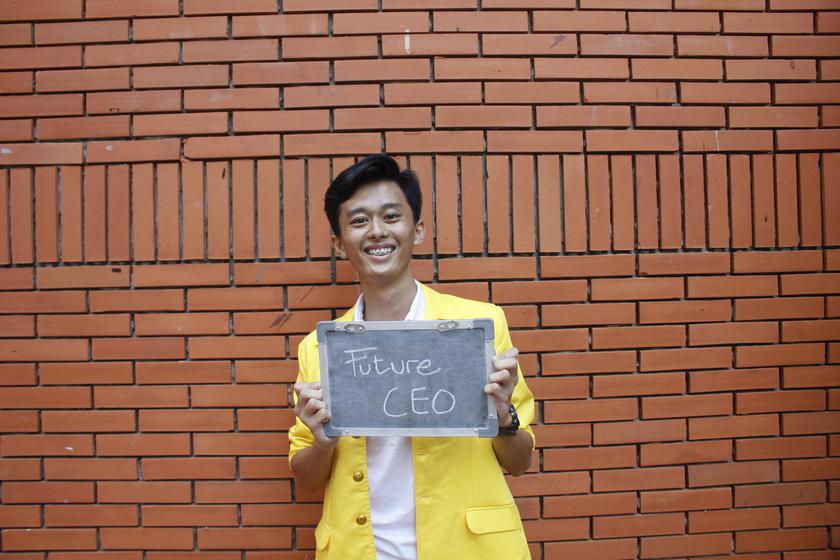 Future
CEO